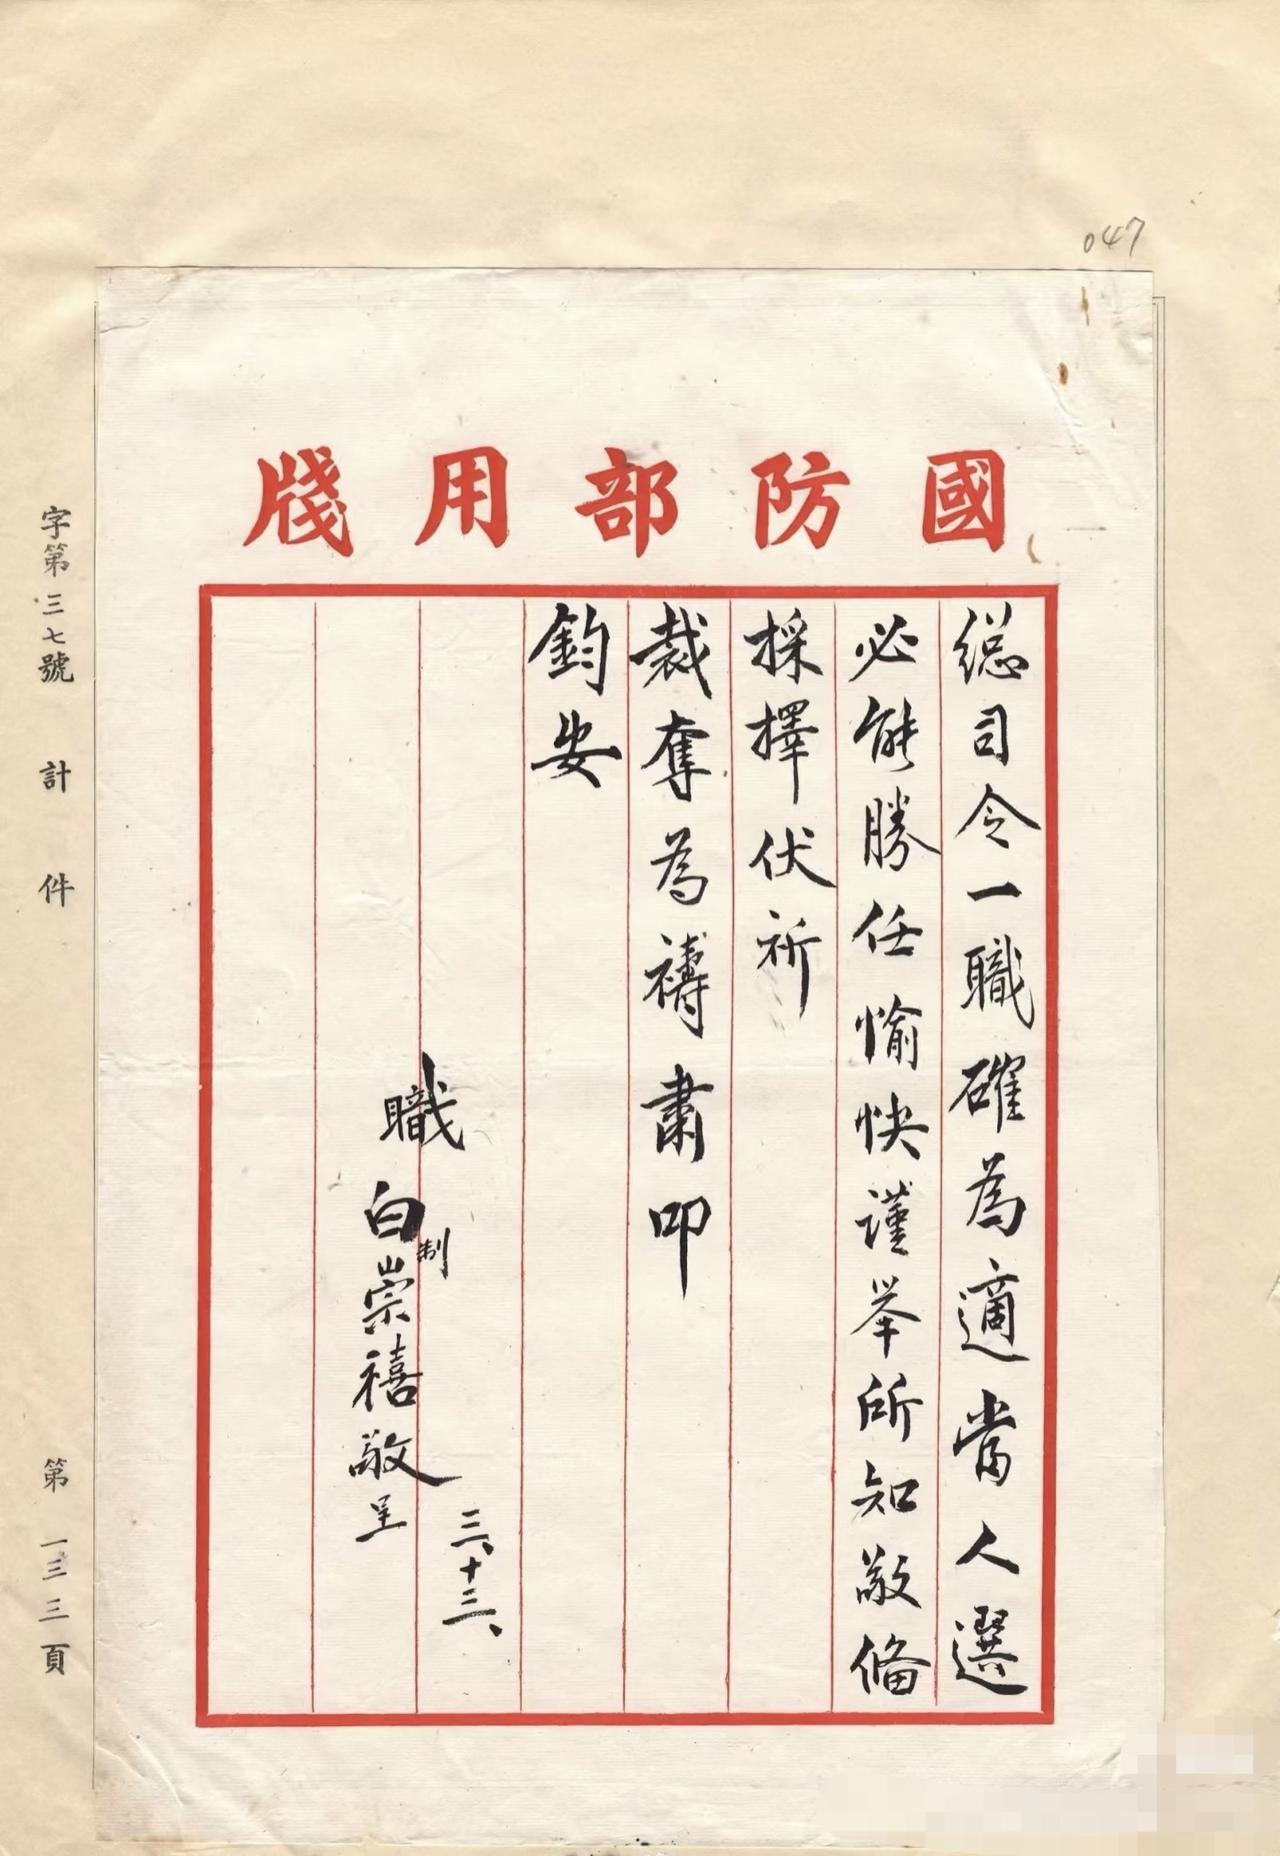 047
國防部用牋
総司令一職確為適當人選
必能勝任愉快謹举所知敬俻
採擇伏祈
裁奪為禱肅叩
鈞安
職
白制崇禧敬呈
三、十三、
字第三七號 計 件
第一三三頁